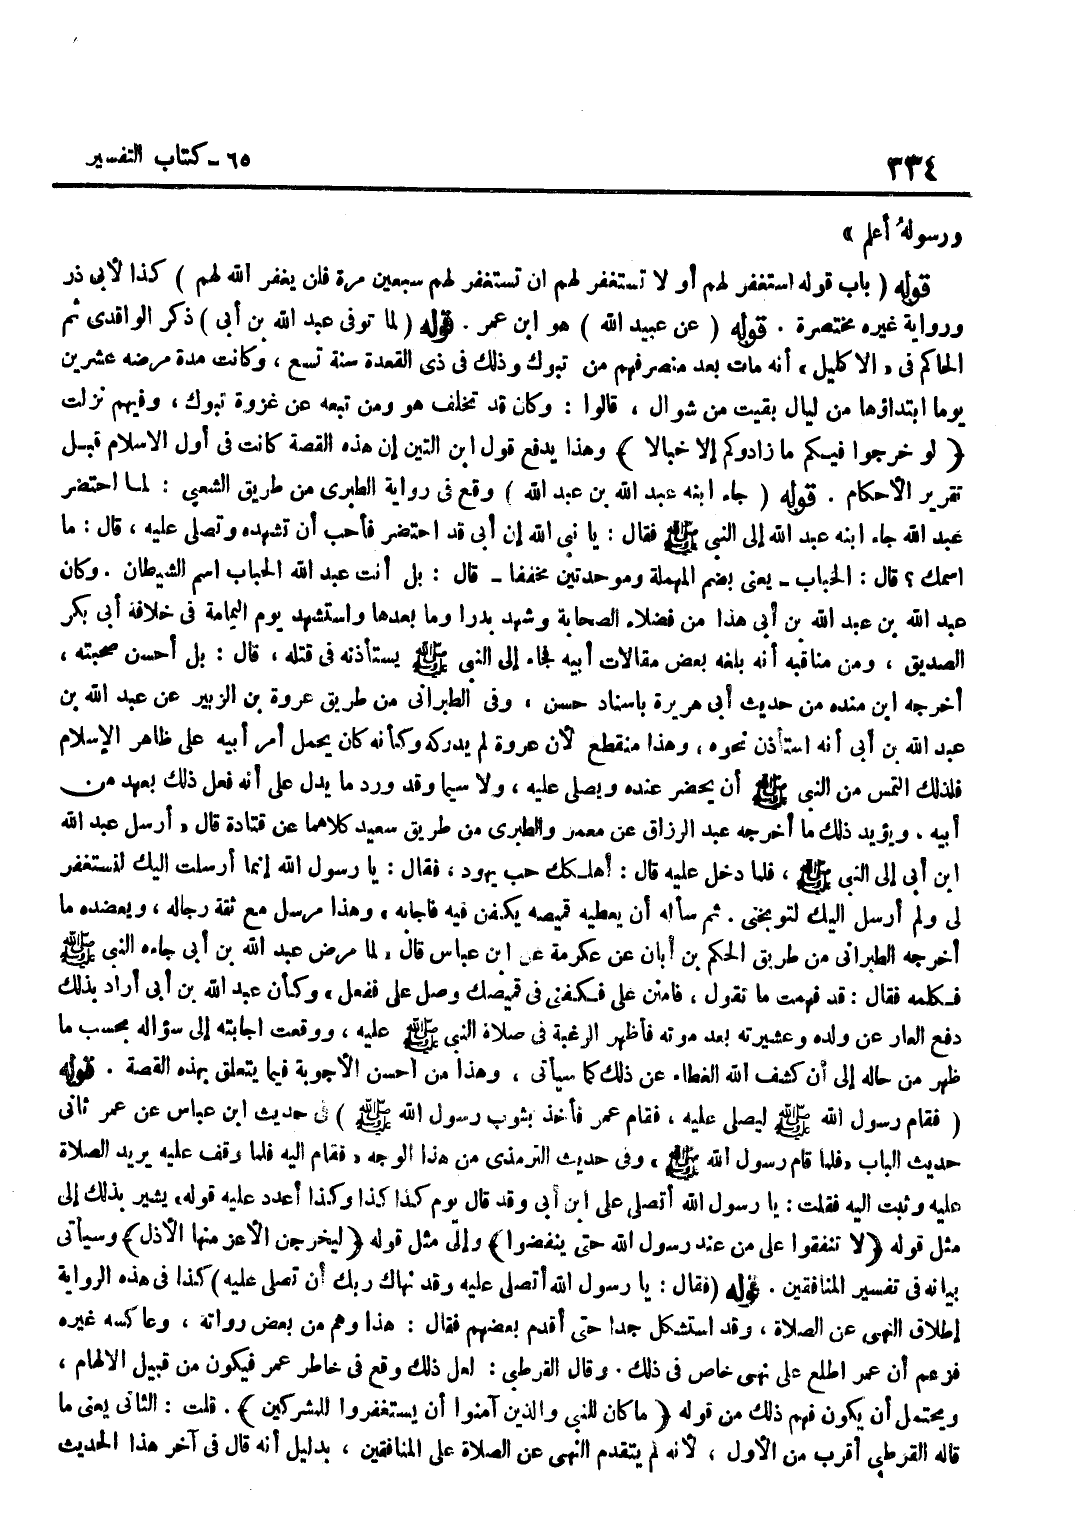 ٣٣٤
٦٥ - كتاب التفسير
ورسولهُ أعلم »
قوله ( باب قوله استغفر لهم أو لا تستغفر لهم ان تستغفر لهم سبعين مرة فلن يغفر الله لهم ) كذا لأبى ذر
ورواية غيره مختصرة . قوله ( عن عبيد الله ) هو ابن عمر . قوله ( لما توفى عبد الله بن أبى ) ذكر الواقدى ثم
الحاكم فى « الاكليل » أنه مات بعد منصرفهم من تبوك وذلك فى ذى القعدة سنة تسع ، وكانت مدة مرضه عشرين
يوما ابتداؤها من ليال بقيت من شوال ، قالوا : وكان قد تخلف هو ومن تبعه عن غزوة تبوك ، وفيهم نزلت
﴿ لو خرجوا فيكم ما زادوكم إلا خبالا ﴾ وهذا يدفع قول ابن التين إن هذه القصة كانت فى أول الاسلام قبل
تقرير الأحكام . قوله ( جاء ابنه عبد الله بن عبد الله ) وقع فى رواية الطبرى من طريق الشعبى : لما احتضر
عبد الله جاء ابنه عبد الله إلى النبي ﷺ فقال : يا نبى الله إن أبى قد احتضر فأحب أن تشهده وتصلى عليه ، قال : ما
اسمك ؟ قال : الحباب ـ يعنى بضم المهملة وموحدتين مخففا ـ قال : بل أنت عبد الله الحباب اسم الشيطان . وكان
عبد الله بن عبد الله بن أبى هذا من فضلاء الصحابة وشهد بدرا وما بعدها واستشهد يوم اليمامة فى خلافة أبى بكر
الصديق ، ومن مناقبه أنه بلغه بعض مقالات أبيه فجاء إلى النبى ﷺ يستأذنه فى قتله ، قال : بل أحسن صحبته ،
أخرجه ابن منده من حديث أبى هريرة باسناد حسن ، وفى الطبرانى من طريق عروة بن الزبير عن عبد الله بن
عبد الله بن أبى أنه استأذن نحوه ، وهذا منقطع لأن عروة لم يدركه وكأنه كان يحمل أمر أبيه على ظاهر الإسلام
فلذلك التمس من النبى ﷺ أن يحضر عنده ويصلى عليه ، ولا سيما وقد ورد ما يدل على أنه فعل ذلك بعهد من
أبيه . ويؤيد ذلك ما أخرجه عبد الرزاق عن معمر والطبرى من طريق سعيد كلاهما عن قتادة قال « أرسل عبد الله
ابن أبى إلى النبى ﷺ ، فلما دخل عليه قال : أهلكك حب يهود ، فقال : يا رسول الله إنما أرسلت اليك لتستغفر
لى ولم أرسل اليك لتوبخنى . ثم سأله أن يعطيه قميصه يكفن فيه فأجابه » وهذا مرسل مع ثقة رجاله ، ويعضده ما
أخرجه الطبرانى من طريق الحكم بن أبان عن عكرمة عن ابن عباس قال « لما مرض عبد الله بن أبى جاءه النبى ﷺ
فكلمه فقال : قد فهمت ما تقول ، فامنن على فكفنى فى قميصك وصل على ففعل » وكأن عبد الله بن أبى أراد بذلك
دفع العار عن ولده وعشيرته بعد موته فأظهر الرغبة فى صلاة النبى ﷺ عليه ، ووقعت اجابته إلى سؤاله بحسب ما
ظهر من حاله إلى أن كشف الله الغطاء عن ذلك كما سيأتى ، وهذا من أحسن الأجوبة فيما يتعلق بهذه القصة . قوله
( فقام رسول الله ﷺ ليصلى عليه ، فقام عمر فأخذ بثوب رسول الله ﷺ ) فى حديث ابن عباس عن عمر ثانى
حديث الباب « فلما قام رسول الله ﷺ » وفى حديث الترمذى من هذا الوجه « فقام اليه فلما وقف عليه يريد الصلاة
عليه وثبت اليه فقلت : يا رسول الله أتصلى على ابن أبى وقد قال يوم كذا كذا وكذا أعدد عليه قوله » يشير بذلك إلى
مثل قوله ﴿ لا تنفقوا على من عند رسول الله حتى ينفضوا ﴾ وإلى مثل قوله ﴿ ليخرجن الأعز منها الأذل ﴾ وسيأتى
بيانه فى تفسير المنافقين . قوله ( فقال : يا رسول الله أتصلى عليه وقد نهاك ربك أن تصلى عليه ) كذا فى هذه الرواية
إطلاق النهى عن الصلاة ، وقد استشكل جدا حتى أقدم بعضهم فقال : هذا وهم من بعض رواته ، وعاكسه غيره
فزعم أن عمر اطلع على نهى خاص فى ذلك . وقال القرطبى : لعل ذلك وقع فى خاطر عمر فيكون من قبيل الالهام ،
ويحتمل أن يكون فهم ذلك من قوله ﴿ ما كان للنبى والذين آمنوا أن يستغفروا للمشركين ﴾ . قلت : الثانى يعنى ما
قاله القرطبى أقرب من الأول ، لأنه لم يتقدم النهى عن الصلاة على المنافقين ، بدليل أنه قال فى آخر هذا الحديث